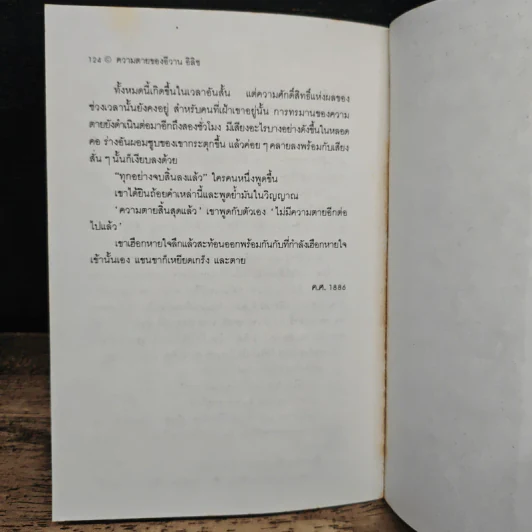 124 © ความตายของอีวาน อิลิช
ทั้งหมดนี้เกิดขึ้นในเวลาอันสั้น แต่ความศักดิ์สิทธิ์แห่งผลของ
ช่วงเวลานั้นยังคงอยู่ สำหรับคนที่เฝ้าเขาอยู่นั้น การทรมานของความ
ตายยังดำเนินต่อมาอีกถึงสองชั่วโมง มีเสียงอะไรบางอย่างดังขึ้นในหลอด
คอ ร่างอันผอมซูบของเขากระตุกขึ้น แล้วค่อย ๆ คลายลงพร้อมกับเสียง
สั้น ๆ นั้นก็เงียบลงด้วย
“ทุกอย่างจบสิ้นลงแล้ว” ใครคนหนึ่งพูดขึ้น
เขาได้ยินถ้อยคำเหล่านี้และพูดย้ำมันในวิญญาณ
‘ความตายสิ้นสุดแล้ว’ เขาพูดกับตัวเอง ‘ไม่มีความตายอีกต่อ
ไปแล้ว’
เขาเฮือกหายใจลึกแล้วสะท้อนออกพร้อมกันกับที่กำลังเฮือกหายใจ
เข้านั้นเอง แขนขาก็เหยียดเกร็ง และตาย
ค.ศ. 1886